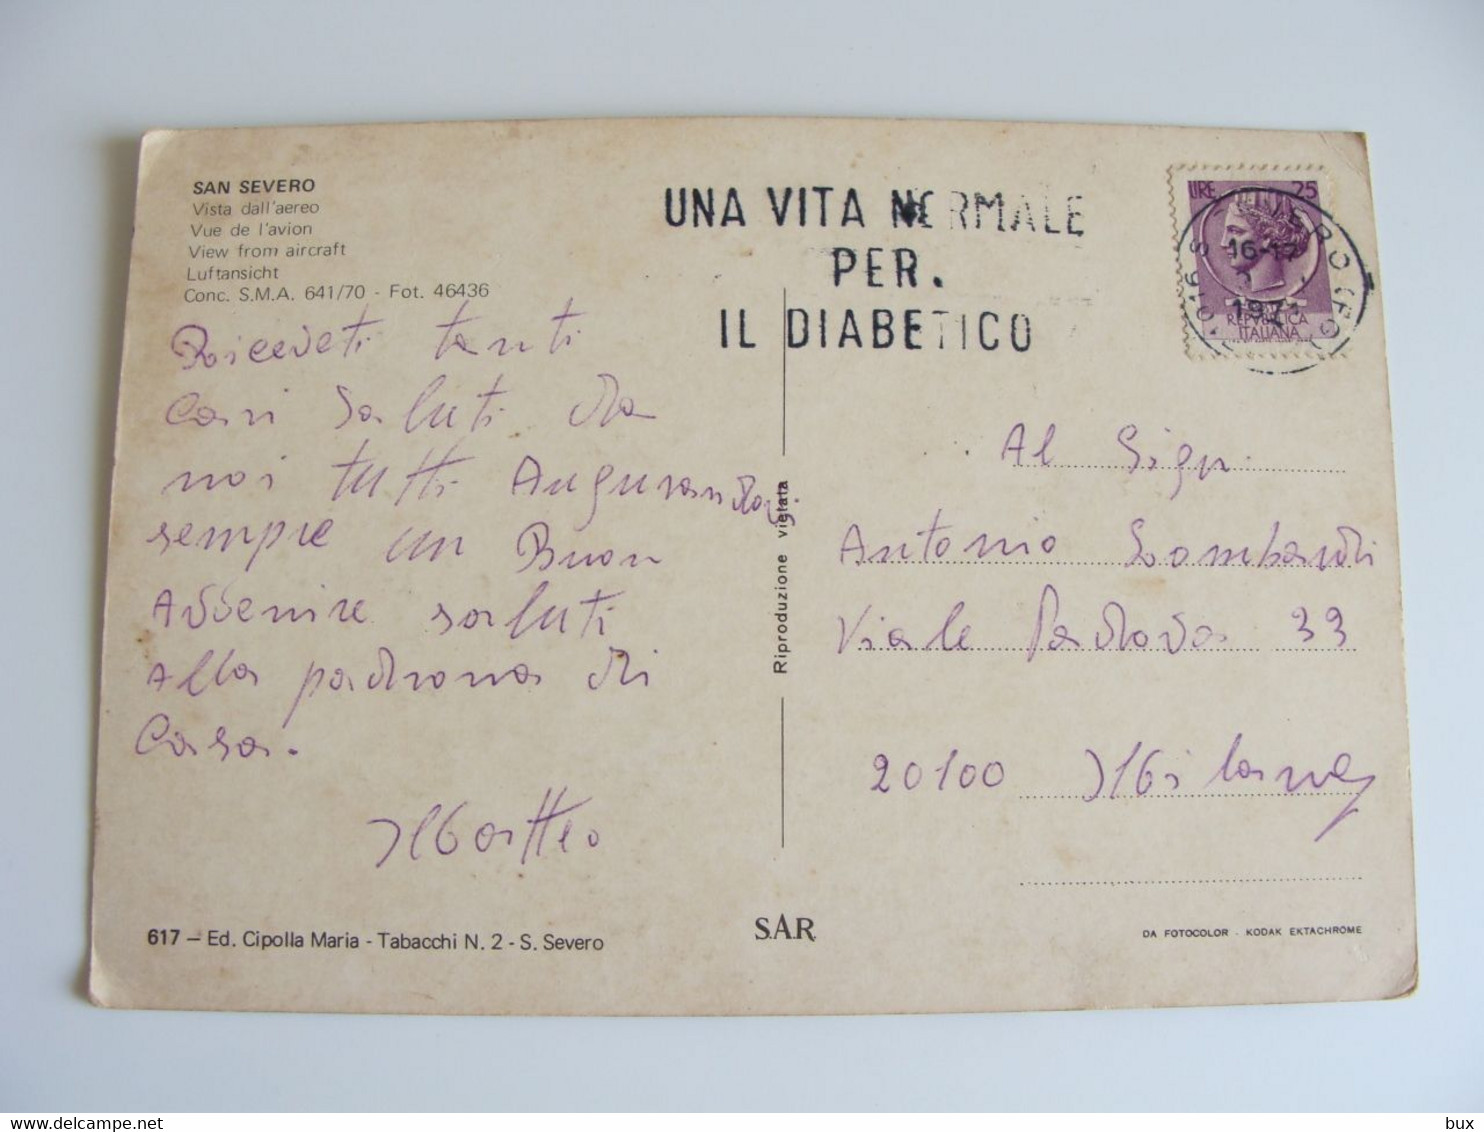 SAN SEVERO
Vista dall'aereo
Vue de l'avion
View from aircraft
Luftansicht
Conc. S.M.A. 641/70 - Fot. 46436
Riceveti tanti
Cari Saluti da
noi tutti Augurandovi
sempre un Buon
Avvenire saluti
Alla padrona di
Casa.
Matteo
617 — Ed. Cipolla Maria - Tabacchi N. 2 - S. Severo
UNA VITA NORMALE
PER.
IL DIABETICO
LIRE 25
16-17
REPVBBLICA
ITALIANA
Riproduzione vietata
Al Sign.
Antonio Lombardi
Viale Padova 33
20100 Milano
S.A.R
DA FOTOCOLOR - KODAK EKTACHROME
bux
www.delcampe.net